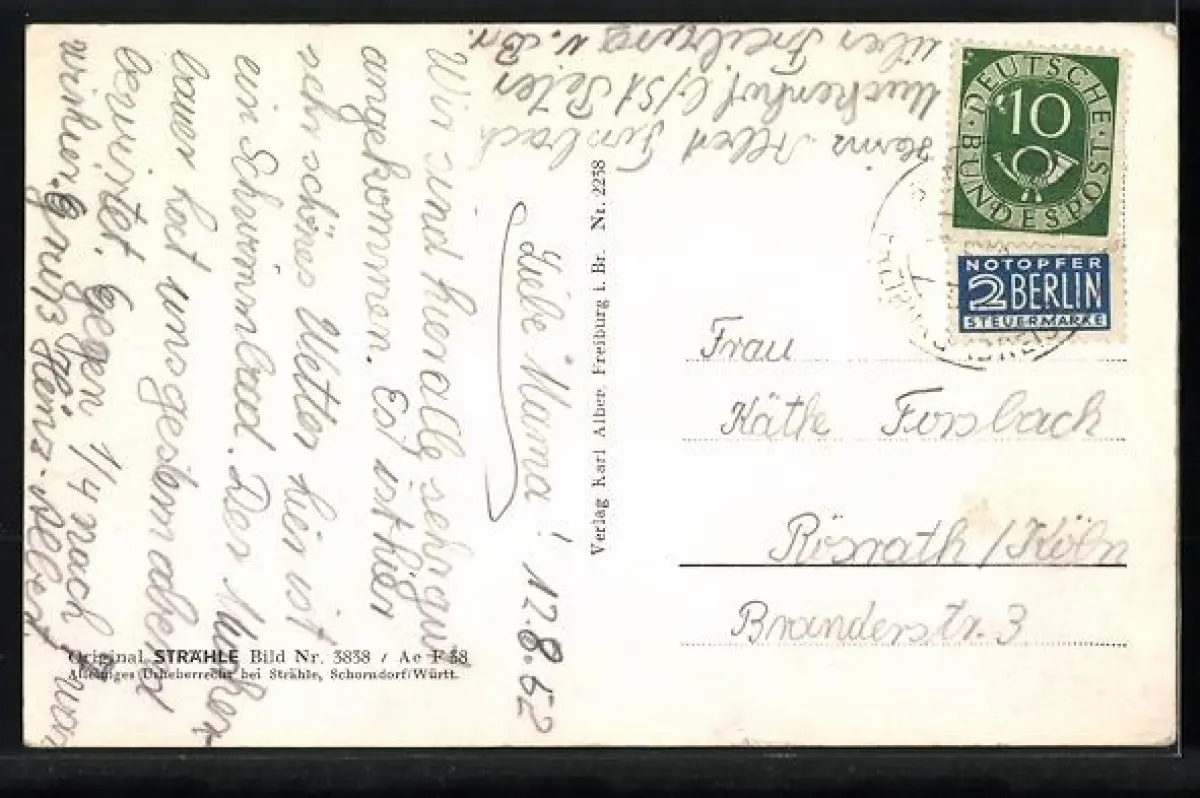 Heinz Albert Forsbach
Muckenhof b/St Peter
über Freiburg i. Br.
Liebe Mama! 12.8.52
Wir sind hier alle sehr gut
angekommen. Es ist hier
sehr schönes Wetter hier ist
ein Schwimmbad. Der Mucken
bauer hat uns gestern abend
bewirtet. Gegen 1/4 nach
Gruß Ihr Heinz-Albert
Verlag Karl Alber, Freiburg i. Br. Nr. 2238
Original STRÄHLE Bild Nr. 3838 / Ae F 38
Alleiniges Urheberrecht bei Strähle, Schorndorf/Württ.
DEUTSCHE
BUNDESPOST
10
NOTOPFER
2 BERLIN
STEUERMARKE
Frau
Käthe Forsbach
Rösrath/Köln
Branderstr. 3